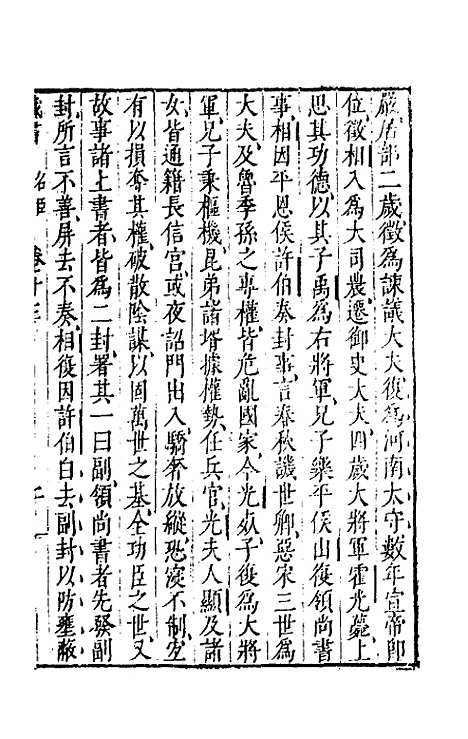 嚴居部二歲徵爲諫議大夫復爲河南太守數年宣帝即
位徵相入爲大司農遷御史大夫四歲大將軍霍光薨上
思其功德以其子禹爲右將軍兄子樂平侯山復領尚書
事相因平恩侯許伯奏封事言春秋譏世卿惡宋三世爲
大夫及魯季孫之專權皆危亂國家今光㱾子復爲大將
軍兄子秉樞機昆弟諸壻據權勢任兵官光夫人顯及諸
女皆通籍長信宮或夜詔門出入驕奢放縱恐寖不制宜
有以損奪其權破散陰謀以固萬世之基全功臣之世又
故事諸上書者皆爲二封署其一曰副領尚書者先發副
封所言不善屏去不奏相復因許伯白去副封以防壅蔽
藏書
卷十三